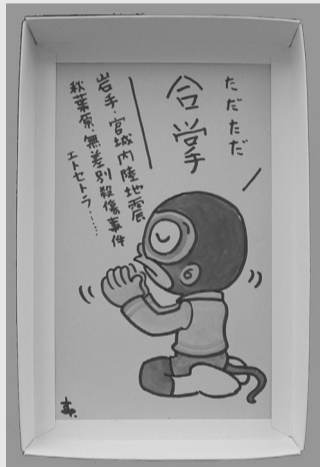 ただただ
合掌
岩手・宮城内陸地震
秋葉原・無差別殺傷事件
エトセトラ……